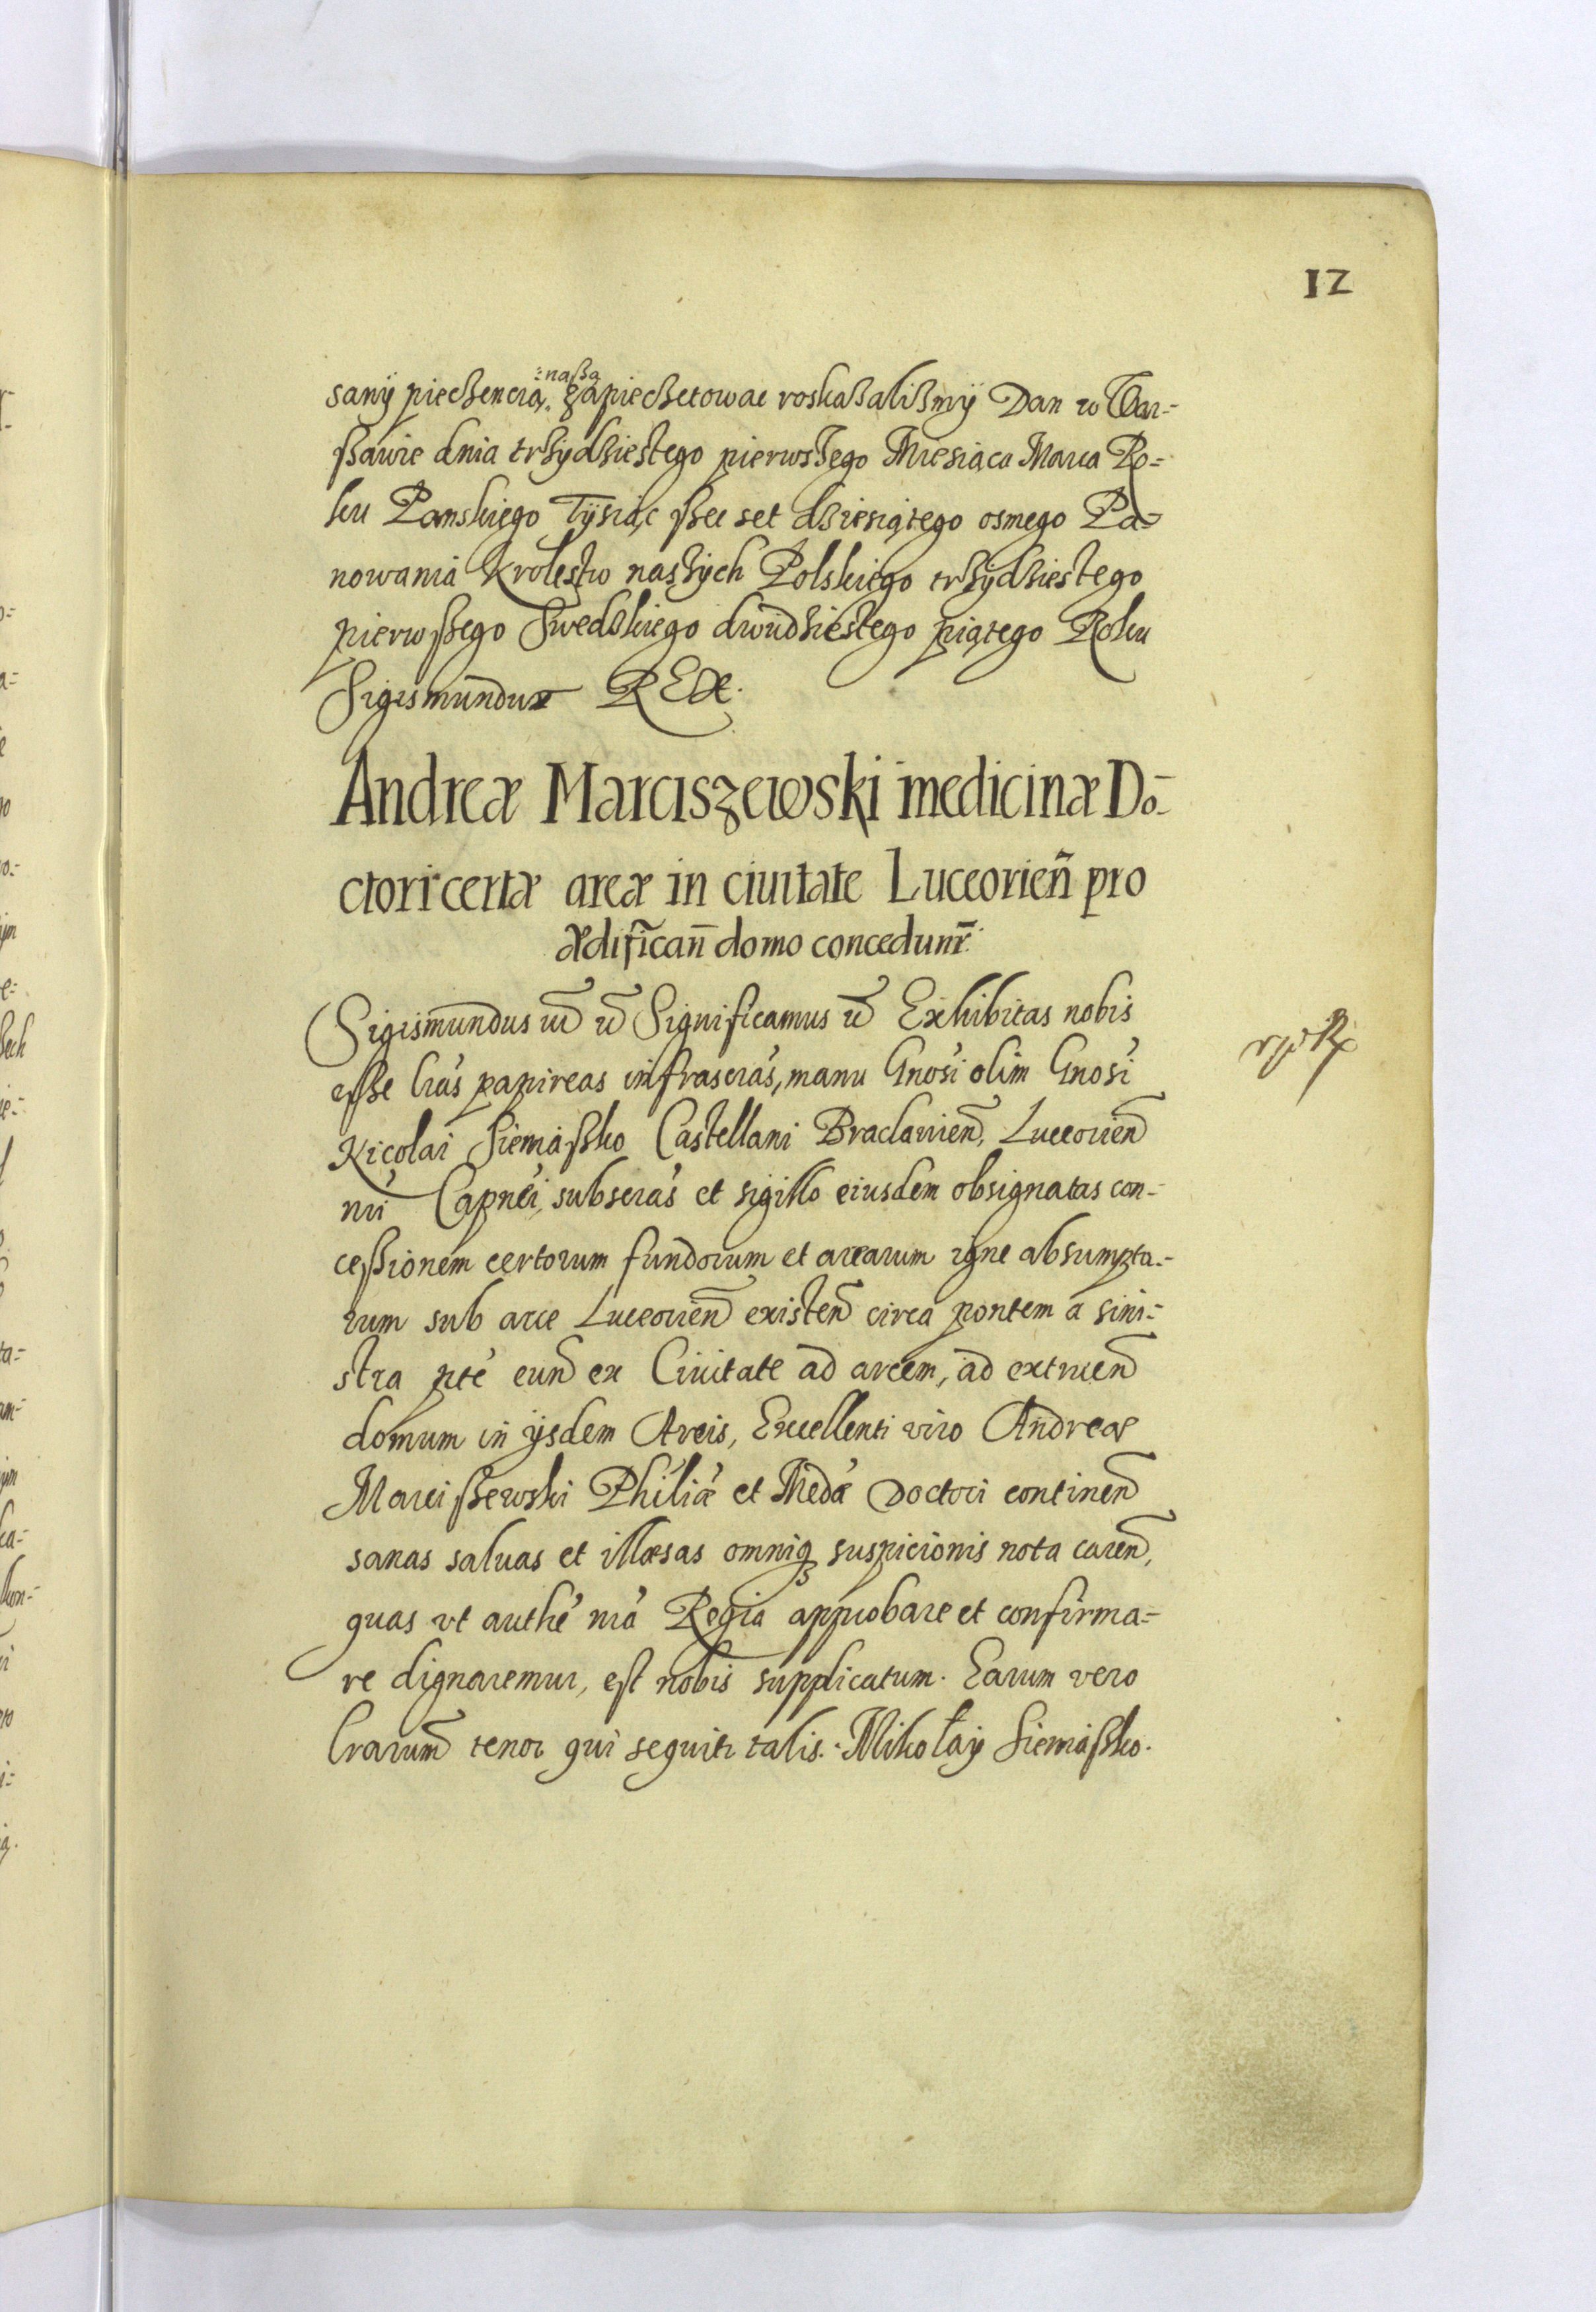 12
sanÿ pieczencią naßą zapieczetowac roskazalißmÿ Dan w War=
ßawie dnia trzÿdziestego pierwszego Miesiąca Marca Ro=
ku Panskiego Tÿsiąc ßec set dziesiątego osmego Pa=
nowania Krolestw naszÿch Polskiego trzÿdziestego
pierwßego Swedzkiego dwudziestego piątego Roku
Sigismundus REX.
Andreæ Marciszewski medicinæ Do=
ctori certæ areæ in ciuitate Luceorieñ pro
ædificañ domo concedunt̃.
Sigismundus Significamus Exhibitas nobis
eße lrás papireas infrascrás, manu Gnósi olim Gnósi
Nicolai Siemaßko Castellani Braclavien̄, Luceorien̄
nri Capnéi, subscrás et sigillo eiusdem obsignatas con=
ceßionem certorum fundorum et arearum igne absumpta=
rum sub arce Luceorien̄ existen̄ circa pontem a sini=
stra pté eun̄ ex Ciuitate ad arcem, ad extruen̄
domum in ijsdem Areis, Excellenti viro Andreæ
Marcißewski Philiǽ et Medǽ Doctori continen̄
sanas saluas et illæsas omniq3 suspicionis nota caren̄,
quas vt authé nrá Regia approbare et confirma=
re dignaremur, est nobis supplicatum. Earum vero
lrarum̄ tenor qui sequitr talis. Mikołaÿ Siemaßko.